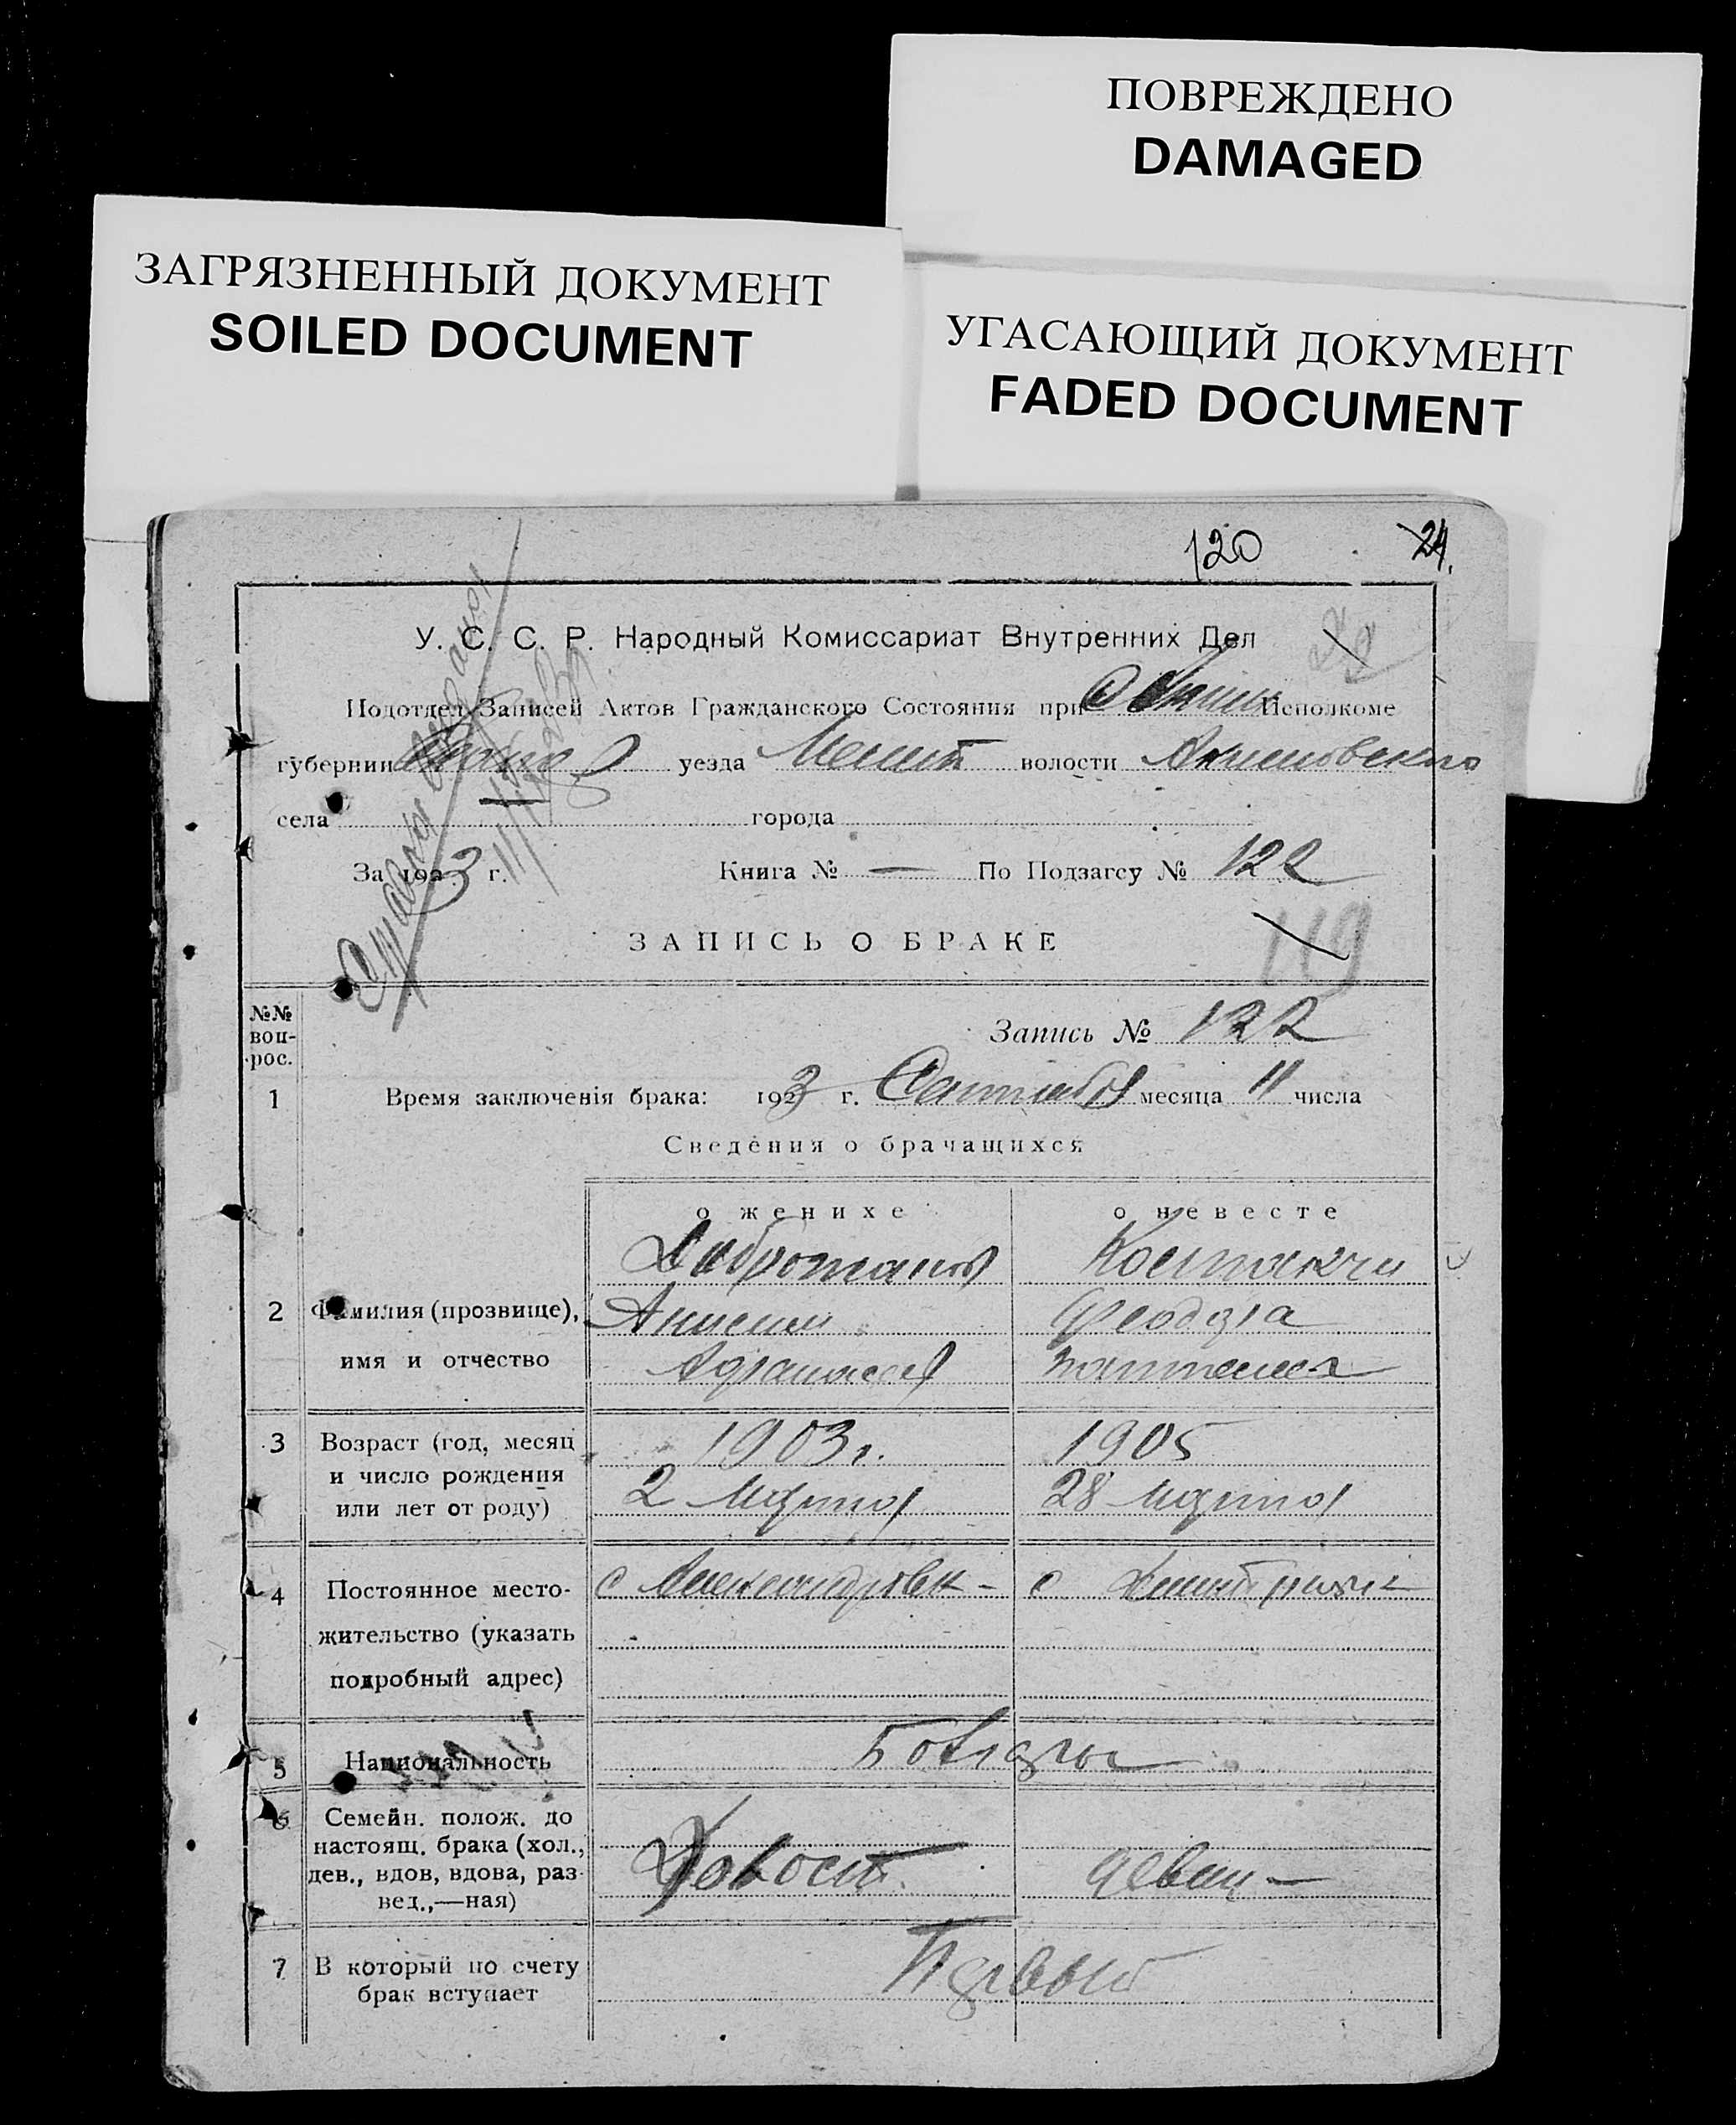 ПОВРЕЖДЕНО
DAMAGED
ЗАГРЯЗНЕННЫЙ ДОКУМЕНТ
SOILED DOCUMENT
УГАСАЮЩИЙ ДОКУМЕНТ
FADED DOCUMENT
120 24.
У. С. С. Р. Народный Комиссариат Внутренних Дел
Подотдел Записей Актов Гражданского Состояния при Исполкоме
губернии уезда Мелит волости Акимовского
села города
За 1923 г. Книга № — По Подзагсу № 122
ЗАПИСЬ О БРАКЕ
119
№№ воп-рос.
Запись № 122
1 Время заключенія брака: 1923 г. Сентября месяца 11 числа
Сведения о брачащихся
о женихе о невесте
Костакчи
2 Фамилия (прозвище), Анисим Феодора
имя и отчество Афанасьев
3 Возраст (год, месяц 1903 г. 1905
и число рождения
или лет от роду) 2 Марта 28 Марта
4 Постоянное место- с Александровк- с
жительство (указать
подробный адрес)
5 Национальность
6 Семейн. полож. до
настоящ. брака (хол.,
дев., вдов, вдова, раз- Холост девиц—
вед.,—ная)
7 В который по счету Первый
брак вступает